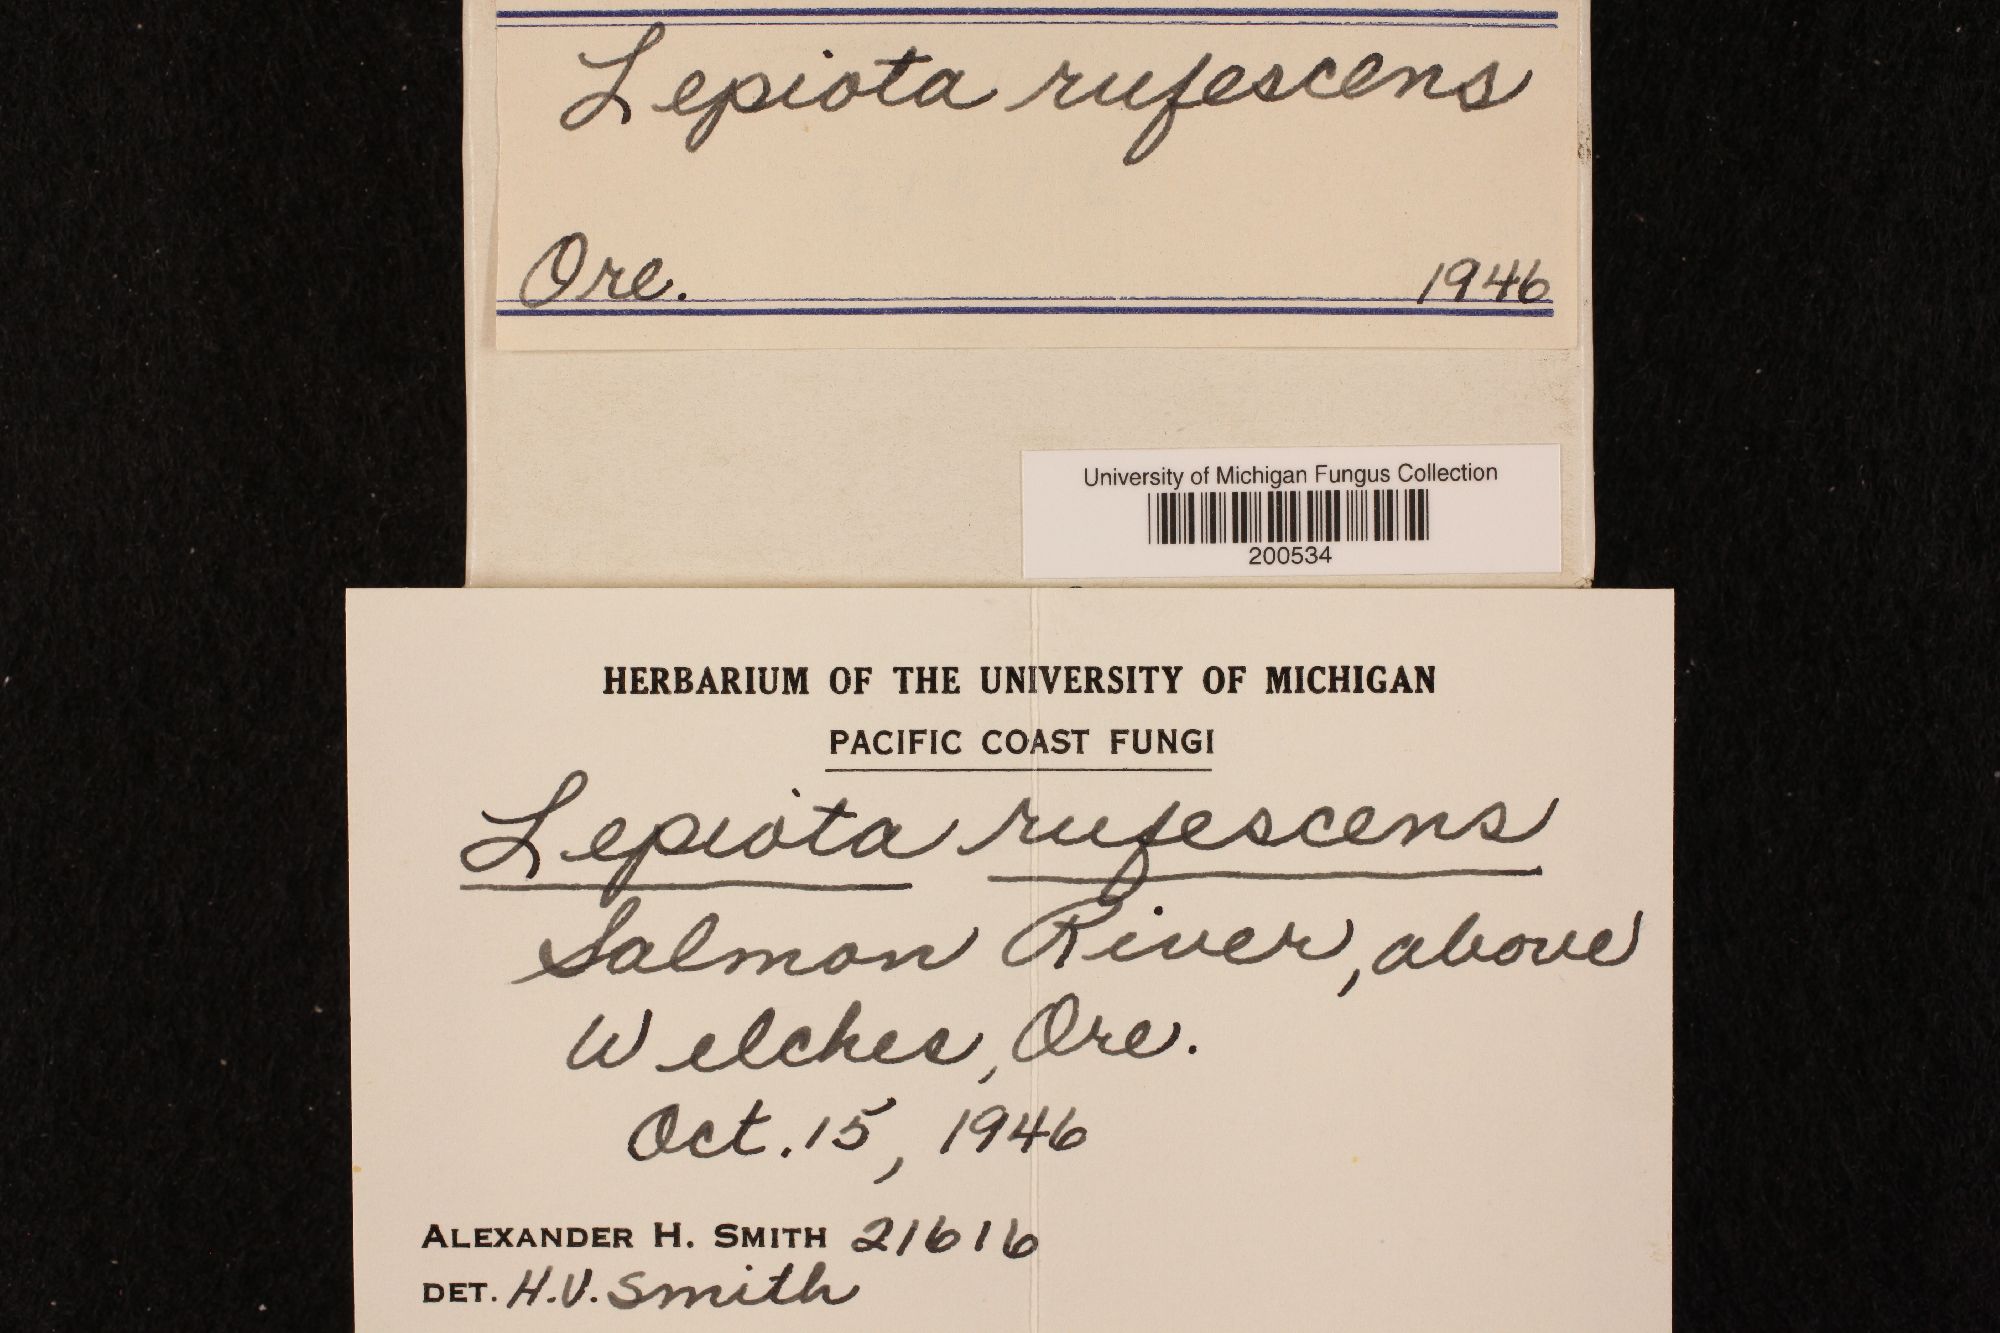 Lepiota rufescens
Ore. 1946
University of Michigan Fungus Collection
200534
HERBARIUM OF THE UNIVERSITY OF MICHIGAN
PACIFIC COAST FUNGI
Lepiota rufescens
Salmon River, above
Welches, Ore.
Oct. 15, 1946
ALEXANDER H. SMITH 21616
DET. H.V. Smith